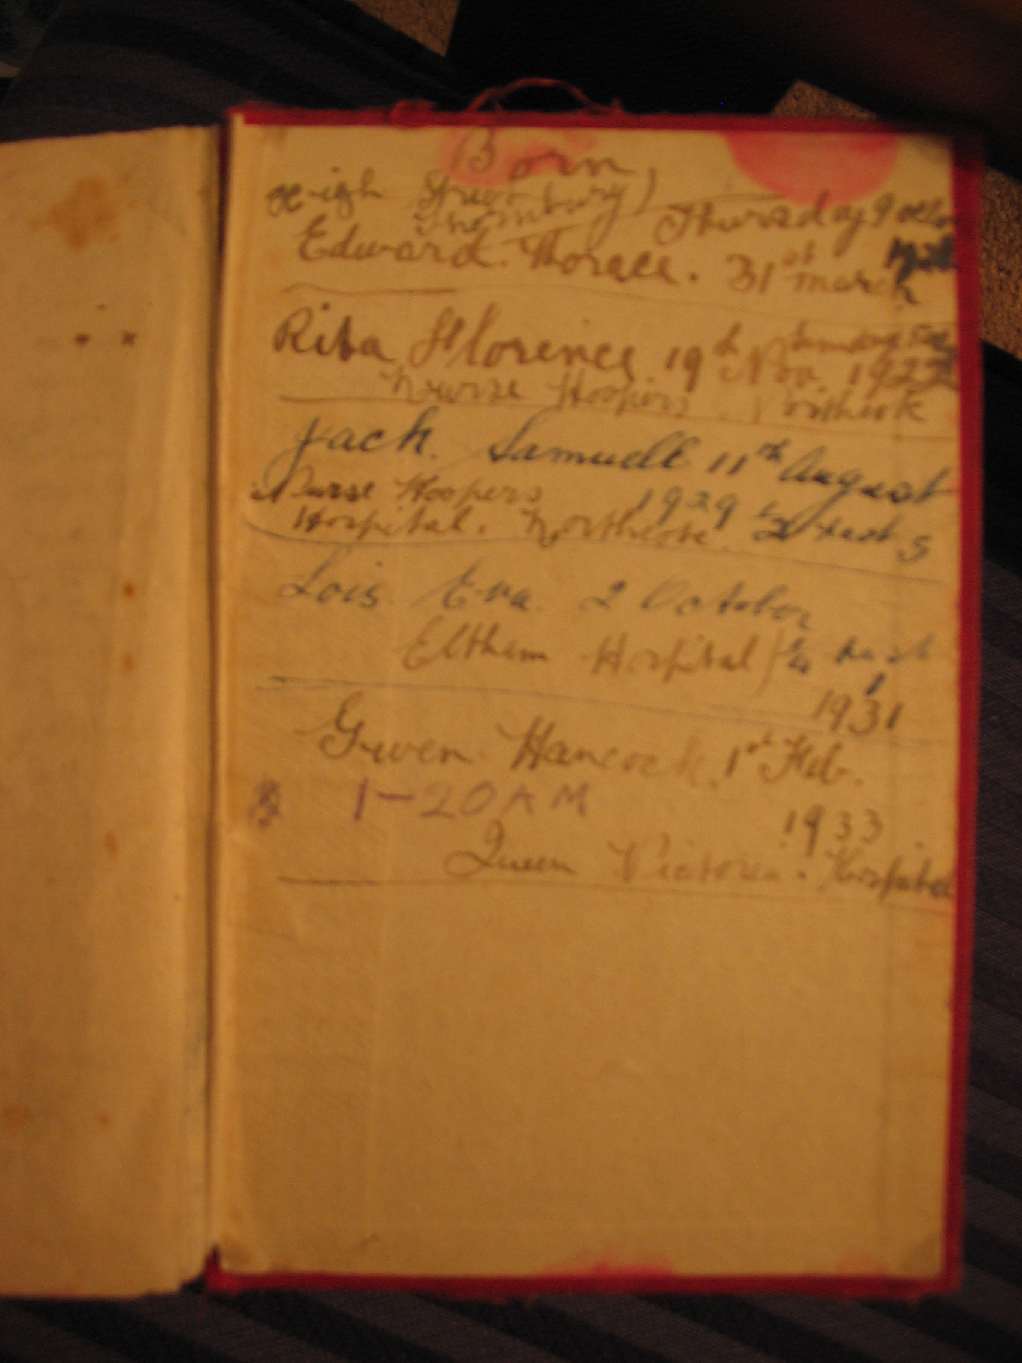 Born
High Street
Thornbury) Thursday 9 oclo
Edward. Horace. 31st march
Rita Florence. 19th Nov. 192
Nurse Hoopers Northcote
Jack. Samuell 11th August
Nurse Hoopers 1929
Hospital. Northcote. past 5
Lois Eva. 2 October
Eltham Hospital 1/4 past 1
1931
Gwen Hancock. 1st Feb.
1-20 AM 1933
Queen Victoria. Hospital